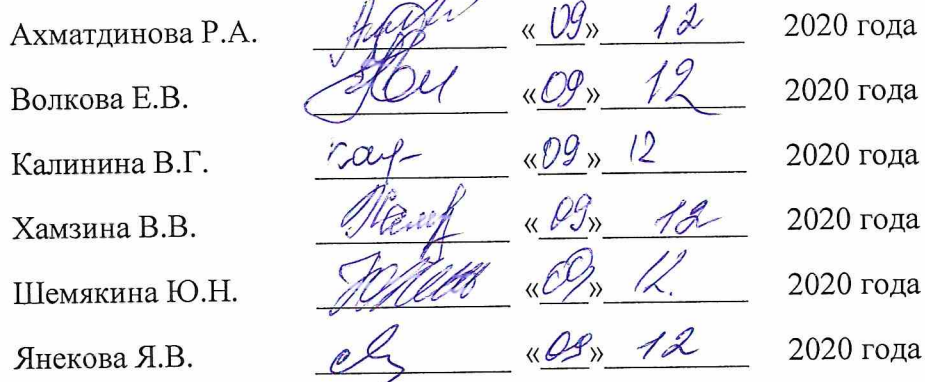 Ахматдинова Р.А. «09» 12 2020 года
Волкова Е.В. «09» 12 2020 года
Калинина В.Г. «09» 12 2020 года
Хамзина В.В. «09» 12 2020 года
Шемякина Ю.Н. «09» 12. 2020 года
Янекова Я.В. «09» 12 2020 года